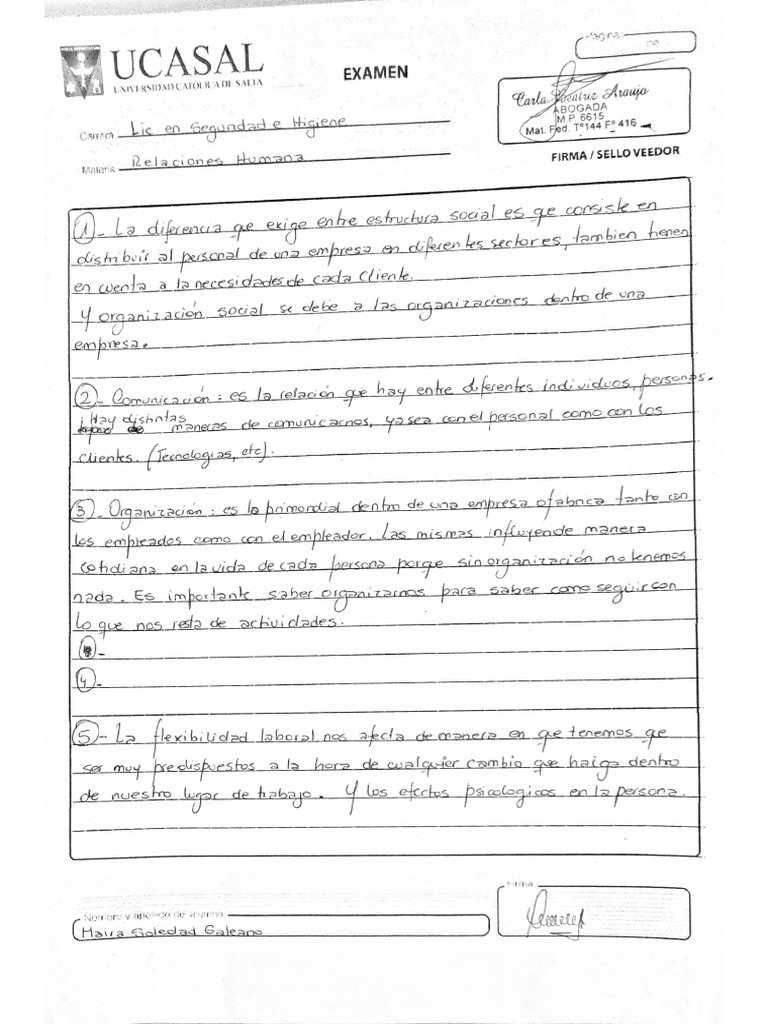 Página:
UCASAL
UNIVERSIDAD CATÓLICA DE SALTA
EXAMEN
Carla Beatriz Araujo
ABOGADA
M.P. 6615
Mat. Fed. T°144 F° 416
FIRMA / SELLO VEEDOR
Carrera Lic en Seguridad e Higiene
Materia Relaciones Humana
1- La diferencia qe exige entre estructura social es qe consiste en
distribuir al personal de una empresa en diferentes sectores, tambien tienen
en cuenta a la necesidades de cada cliente.
Y organización social se debe a las organizaciones dentro de una
empresa.
2- Comunicación: es la relación que hay entre diferentes individuos, personas.
Hay distintas
maneras de comunicarnos, ya sea con el personal como con los
clientes. (Tecnologias, etc).
3- Organización: es lo primordial dentro de una empresa o fabrica tanto con
los empleados como con el empleador. Las mismas influyen de manera
cotidiana en la vida de cada persona porqe sin organización no tenemos
nada. Es importante saber organizarnos para saber como seguir con
lo que nos resta de actividades.
4-
5- La flexibilidad laboral nos afecta de manera en que tenemos que
ser muy predispuestos a la hora de cualqyer cambio que haiga dentro
de nuestro lugar de trabajo. Y los efectos psicologicos en la persona.
Nombre y apellido de alumno
Maira Soledad Galeano
Firma